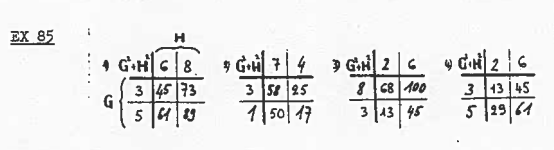 EX 85
H
1) G²+H² 6 8 2) G²+H² 7 4 3) G²+H² 2 6 4) G²+H² 2 6
G 3 45 73 3 58 25 8 68 100 3 13 45
5 61 89 1 50 17 3 13 45 5 29 61